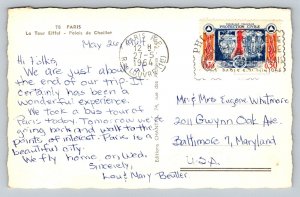 76 PARIS
La Tour Eiffel - Palais de Chaillot
May 26
Hi Folks,
We are just about
the end of our trip. It
certainly has been a
wonderful experience.
We took a bus tour of
Paris today. Tomorrow we're
going back and walk to the
points of interest. Paris is a
beautiful city.
We fly home on Wed.
Sincerely,
Lou & Mary Beitler
PARIS
1964
PROTECTION CIVILE
Mr & Mrs Eugene Whitmore
2011 Gwynn Oak Ave
Baltimore 7, Maryland
U.S.A.